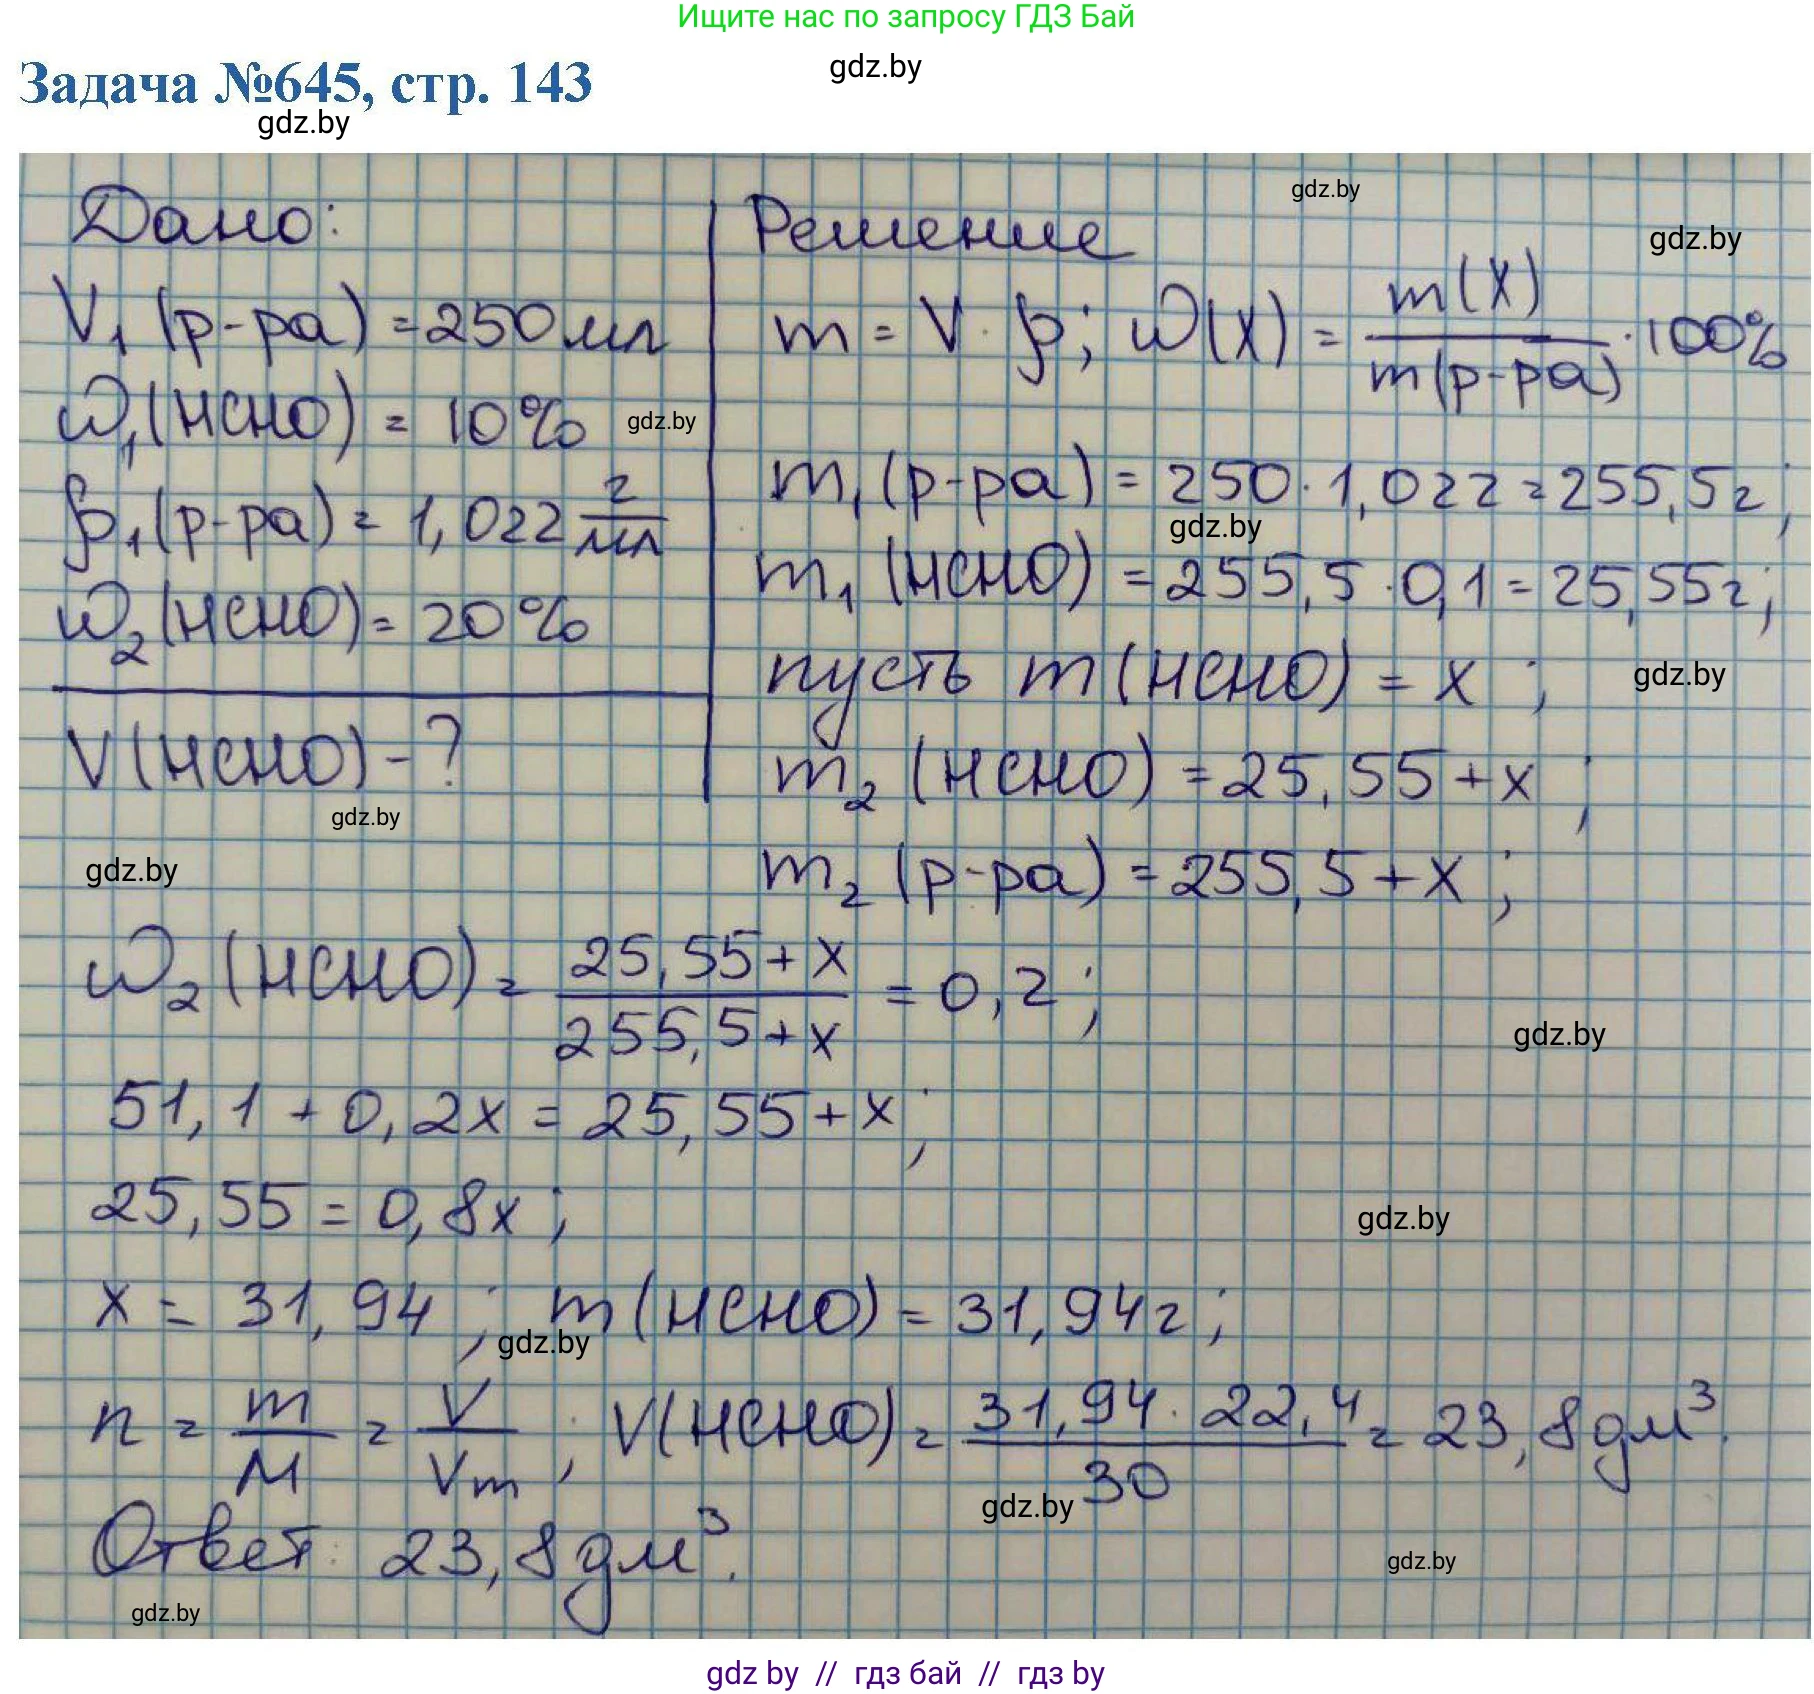 Ищите нас по запросу ГДЗ Бай
gdz.by
Задача №645, стр. 143
gdz.by
gdz.by
Дано:
V₁(р-ра) = 250 мл
ω₁(HCHO) = 10%
gdz.by
ρ₁(р-ра) = 1,022 г/мл
ω₂(HCHO) = 20%
V(HCHO) - ?
gdz.by
gdz.by
Решение
gdz.by
m = V · ρ; ω(X) = m(X)/m(р-ра) · 100%
m₁(р-ра) = 250 · 1,022 = 255,5г;
gdz.by
m₁(HCHO) = 255,5 · 0,1 = 25,55г;
пусть m(HCHO) = x ;
gdz.by
m₂(HCHO) = 25,55 + x ;
m₂(р-ра) = 255,5 + x ;
ω₂(HCHO) = (25,55 + x)/(255,5 + x) = 0,2 ;
gdz.by
51,1 + 0,2x = 25,55 + x ;
25,55 = 0,8x ;
gdz.by
x = 31,94 ; m(HCHO) = 31,94г ;
gdz.by
n = m/M = V/Vm ; V(HCHO) = (31,94 · 22,4)/30 = 23,8 дм³.
gdz.by
Ответ: 23,8 дм³.
gdz.by
gdz.by
gdz by // гдз бай // гдз by